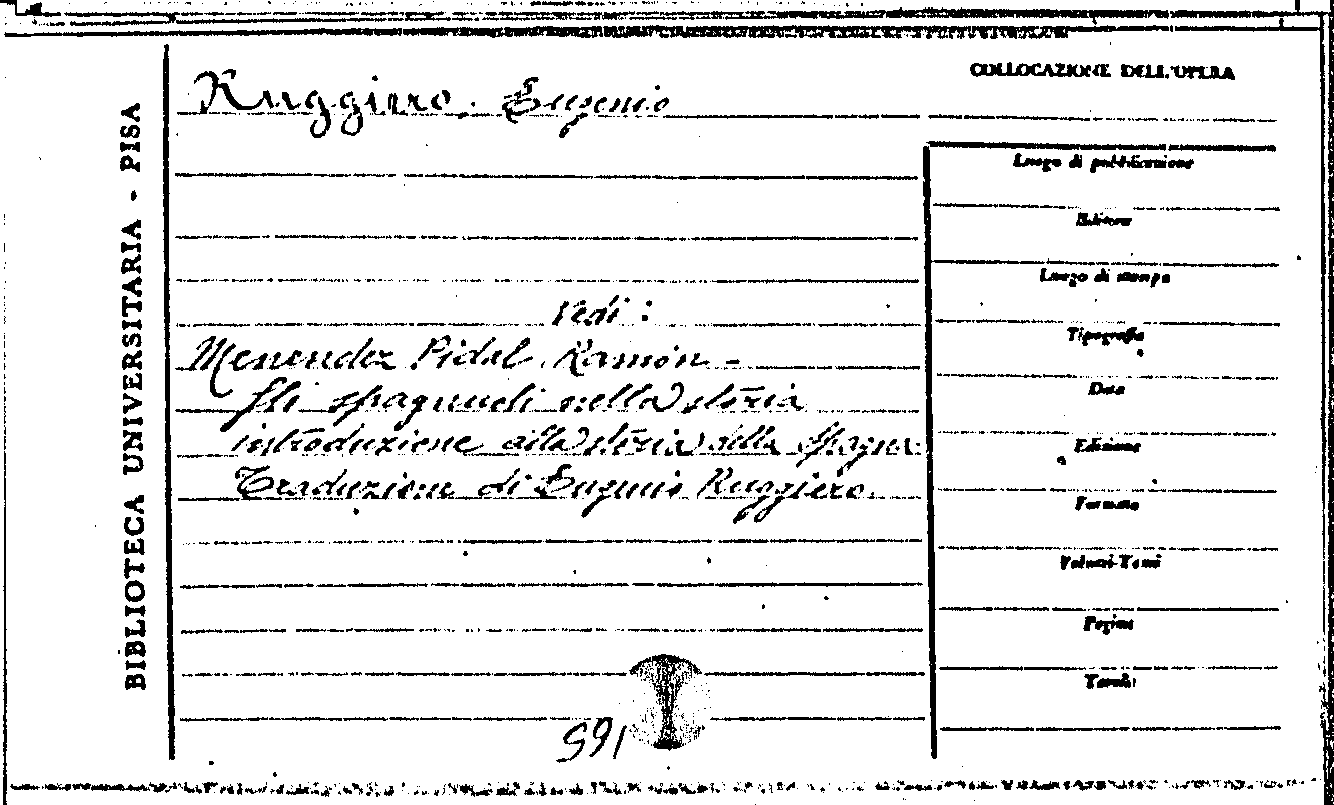 BIBLIOTECA UNIVERSITARIA - PISA
Ruggiero, Eugenio
Vedi :
Menendez Pidal Ramón -
Gli spagnuoli nella storia
introduzione alla storia della Spagna.
Traduzione di Eugenio Ruggiero.
591
COLLOCAZIONE DELL'OPERA
Luogo di pubblicazione
Editore
Luogo di stampa
Tipografia
Data
Edizione
Formato
Volumi-Tomi
Pagine
Tavole